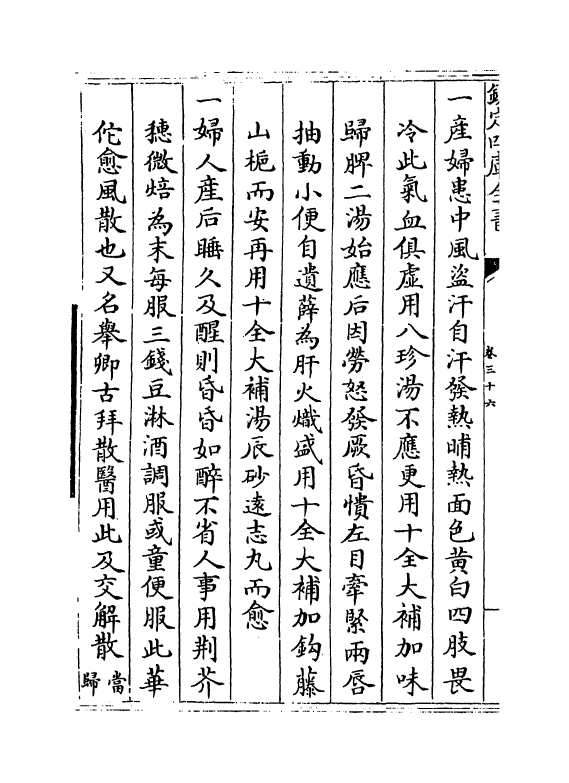 欽定四庫全書
卷三十六
一産婦患中風盜汗自汗發熱晡熱面色黄白四肢畏
冷此氣血俱虛用八珍湯不應更用十全大補加味
歸脾二湯始應后因勞怒發厥昏憒左目牽緊兩唇
抽動小便自遺薛為肝火熾盛用十全大補加鈎藤
山梔而安再用十全大補湯辰砂遠志丸而愈
一婦人産后睡久及醒則昏昏如醉不省人事用荆芥
穗微焙為末每服三錢豆淋酒調服或童便服此華
佗愈風散也又名舉卿古拜散醫用此及交解散當歸